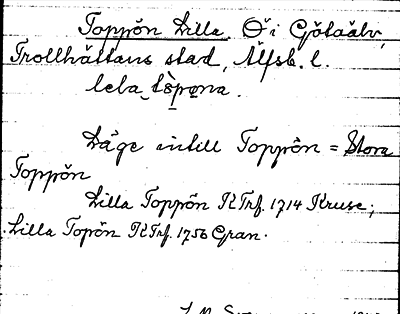 Toppön Lilla. Ö i Götaälv,
Trollhättans stad, Älfsb. l.
Läge intill Toppön = Stora
Toppön
Lilla Toppön RTrf. 1714 Kruse;
Lilla Topön RTrf. 1756 Gran.